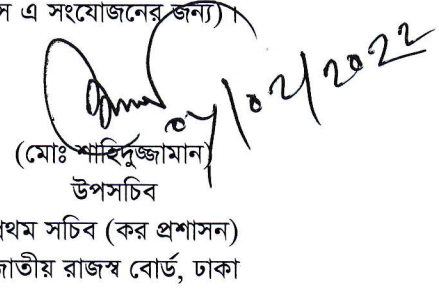 স এ সংযোজনের জন্য)।
/০২/২০২২
(মোঃ শাহিদুজ্জামান)
উপসচিব
প্রথম সচিব (কর প্রশাসন)
জাতীয় রাজস্ব বোর্ড, ঢাকা